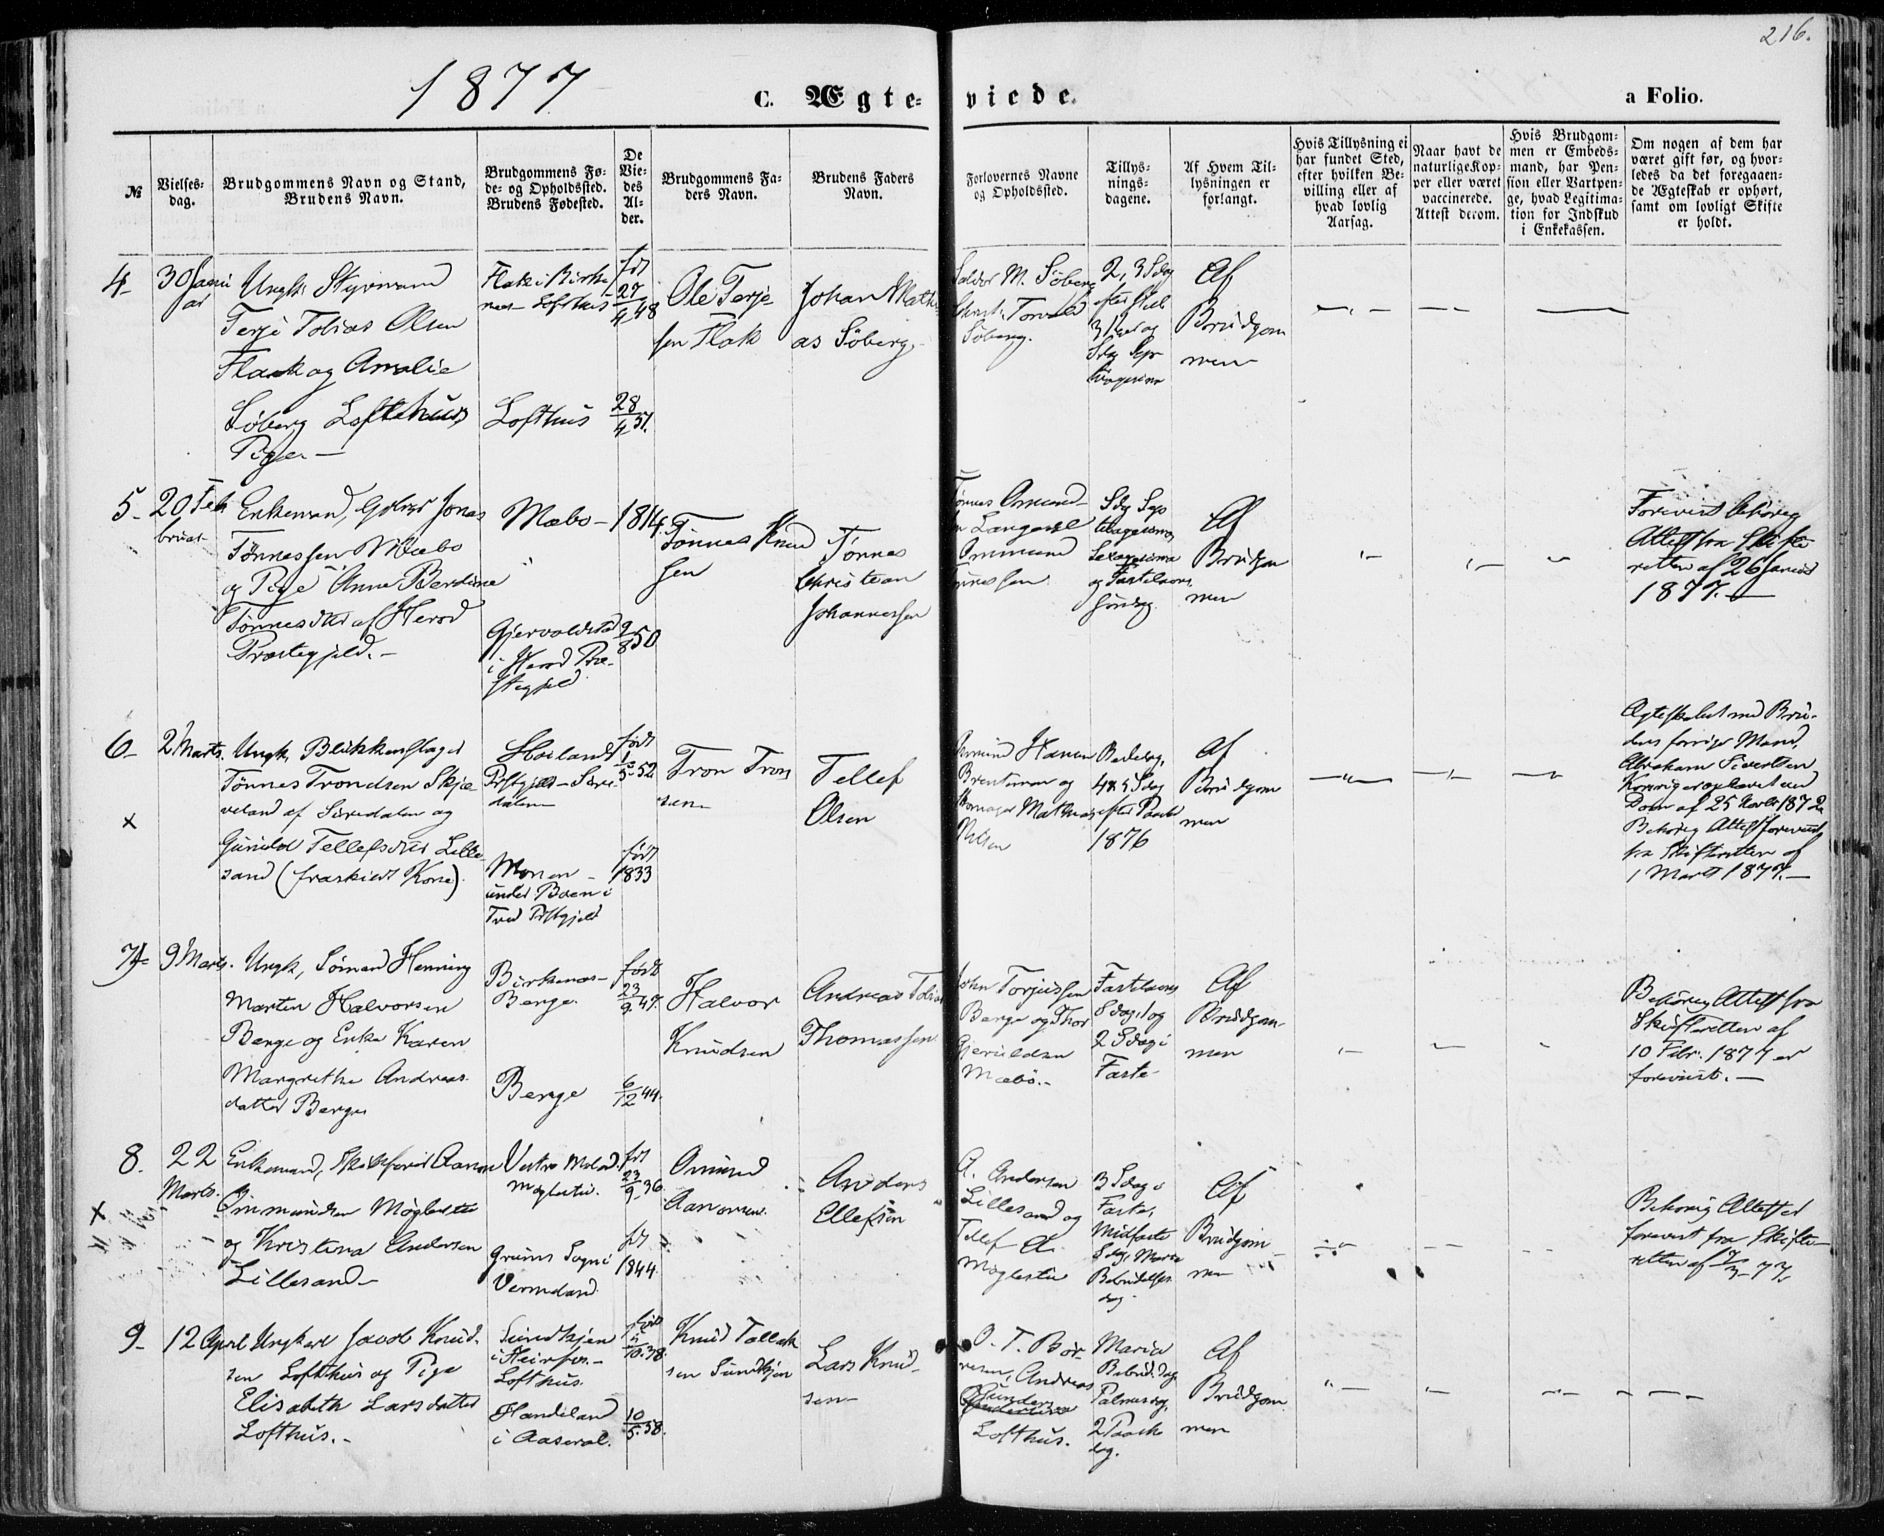 216.
1877
C. Ægte-
viede.
a Folio.
No
Vielses-
dag.
Brudgommens Navn og Stand,
Brudens Navn.
Brudgommens Fø-
de- og Opholdssted.
Brudens Fødested.
De
Vie-
des
Al-
der.
Brudgommens Fa-
ders Navn.
Brudens Faders
Navn.
Forlovernes Navne
og Opholdssted.
Tillys-
nings-
dagene.
Af Hvem Til-
lysningen er
forlangt.
Hvis Tillysning ei
har fundet Sted,
efter hvilken Be-
villing eller af
hvad lovlig
Aarsag.
Naar havt de
naturlige Kop-
per eller været
vaccinerede.
Attest derom.
Hvis Brudgom-
men er Embeds-
mand, har Pen-
sion eller Vartpen-
ge, hvad Legitima-
tion for Indskud
i Enkekassen.
Om nogen af dem har
været gift før, og hvor-
ledes da det foregaaen-
de Ægteskab er ophørt,
samt om lovligt Skifte
er holdt.
4-
30 Janu
ar
Ungk. Styrmand
Terje Tobias Olsen
Flaak og Amalie
Söberg Lofthuus
Pige-
Flak i Birke
næs - Lofthus
Lofthus
fød
27/4 48
28/4 51.
Ole Terje
sen Flak
Johan Mathi
as Söberg
M. Söberg
Torvald
Söberg.
2, 3 Sdag
efter
og
Sdg Sep
tuagesima
Af
Brudgom
men
5-
20 Feb
bruar
Enkemand, Gdbr Jonas
Tønnessen Mæbo
og Pige Anne Berdine
Tønnesdtr af Herod
Præstegjeld.-
Mæbo-
Gjervoldstad
i Herod Præ-
stegjeld
1814.
9/8 50
Tönnes Knud
sen
Tønnes
Christian
Johannessen
Tönnes Omund
Langedal
Ommund
Sdg Sep
tuagesima
Sexagesima
og Fastelavns
söndag.
Af
Brudgom
men
Forevist behörig
Attest fra Skifte
retten af 26 Januar
1877.-
6-
2 Marts.
x
Ungk. Blikkenslager
Tønnes Trondsen Skjæ
veland af Siredalen og
Gunild Tellefsdtr Lille
sand (fraskildt Kone).
Höiland
Pstgjeld - Sire-
dalen
Monen -
under Boen i
Tved Pstgjeld
født
1/5 52
født
1833
Tron Tron
sen
Tellef
Olsen
Hansen
og
Mathias
Nilsen
Bededag,
4 & 5 Sdag
efter Paaske
1876
Af
Brudgom
men
Ægteskabet med Bru-
dens forrige Mand,
Abraham Sivertsen
ophævet ved
Dom af 25 1872
Behörig Attest forevist
fra Skifteretten af
1 Marts 1877.-
7
9 Marts.
Ungk, Sømand Henning
Marten Halvorsen
Berge og Enke Karen
Margrethe Andreas
datter Berge
Birkenæs-
Berge.
Berge
født
23/9 47.
6/12 44.
Halvor
Knudsen
Andreas Tobias
Thomassen
John Torjussen
Berge og Thor
Gjeruldsen
Mæbö.-
Fastelavns
Sdag, 1 og
2 Sdag i
Faste-
Af
Brudgom
men
Behörig Attest fra
Skifteretten af
10 Febr. 1877 er
forevist.-
8.
22
Marts.
x
Enkemand, Aanon
Ommundsen Møglestu
og Kristena Andersen
Lillesand-
Vestre Moland
Møglestu.
Grums Sogn i
Vermeland
født
23/9 36
født
1844.
Omund
Aanonsen.
Anders
Ellefsen
A. Andersen
Lillesand og
Tellef A.
Møglestu
3 Sdag i
Faste,
Midfaste
Sdag, Mariæ
Bebudelses
dag.
Af
Brudgom
men
Behörig Attest er
forevist fra Skifte-
retten af 77.
9-
12 April
Ungkarl Jacob Knud-
sen Lofthus og Pige
Elisabeth Larsdatter
Lofthus.-
Sundtkjen
i Heirfos.-
Lofthus.
Handeland
i Aaseral.
født
10.38.
10/5.58.
Knud Tallak
sen Sundtkjen
Lars Knud-
sen
O. T. Bör-
resen, Andreas
Gunders
Lofthus.
Mariæ
Bebud. dag
Palmesdg,
2 Paaske
dag.
Af
Brudgom
men